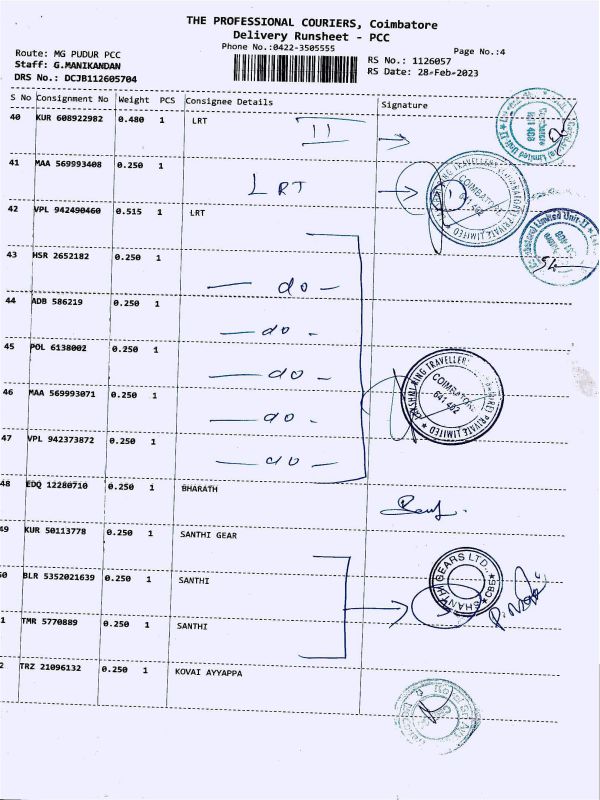 THE PROFESSIONAL COURIERS, Coimbatore
Delivery Runsheet - PCC
Phone No.:0422-3505555
Page No.:4
Route: MG PUDUR PCC
Staff: G.MANIKANDAN
DRS No.: DCJB112605704
RS No.: 1126057
RS Date: 28-Feb-2023
S No Consignment No Weight PCS Consignee Details Signature
40 KUR 608922982 0.480 1 LRT
11
41 MAA 569993408 0.250 1
LRT
42 VPL 942490460 0.515 1 LRT
43 HSR 2652182 0.250 1
— do —
44 ADB 586219 0.250 1
— do -
45 POL 6138002 0.250 1
— do —
46 MAA 569993071 0.250 1
— do -
47 VPL 942373872 0.250 1
— do —
48 EDQ 12280710 0.250 1 BHARATH
49 KUR 50113778 0.250 1 SANTHI GEAR
50 BLR 5352021639 0.250 1 SANTHI
1 TMR 5770889 0.250 1 SANTHI
2 TRZ 21096132 0.250 1 KOVAI AYYAPPA
COIMBATORE
641 402
PRIVATE LIMITED
RING TRAVELLER
COIMBATORE
641 402
PRIVATE LIMITED
SHANTHI GEARS LTD.
CBE